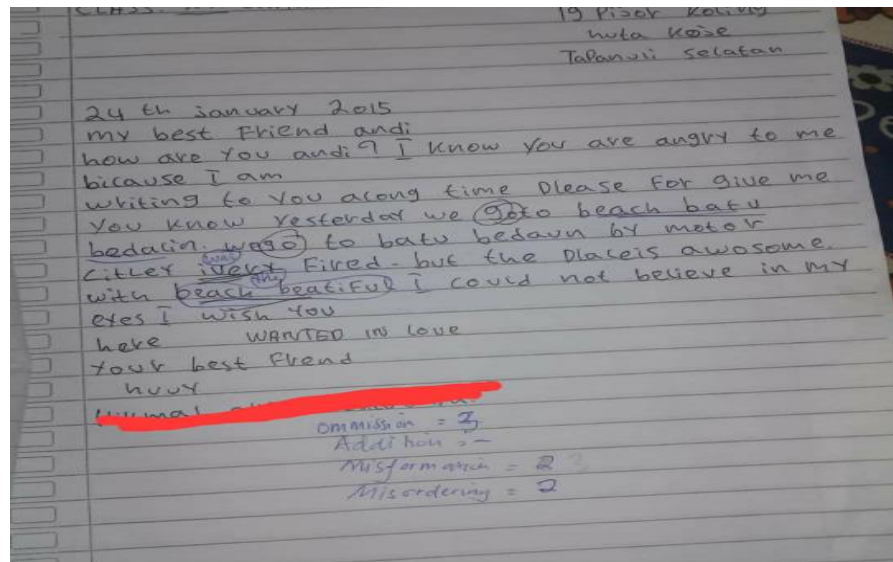 CLASS:
19 Pisor Koling
huta Kose
TaPanuli selatan
24 th january 2015
my best Friend andi
how are You andi? I know you are angry to me
bicause I am
writing to You along time Please For give me
You know Yesterday we goto beach batu
bedaun. wego to batu bedaun by motor
was
citley ivery Fired - but the Placeis awosome.
the
with beach beatiFul I could not believe in my
eyes I wish You
here WANTED in Love
Your best Friend
Ommission = 3
Addition : -
Misformation = 2
Misordering = 2